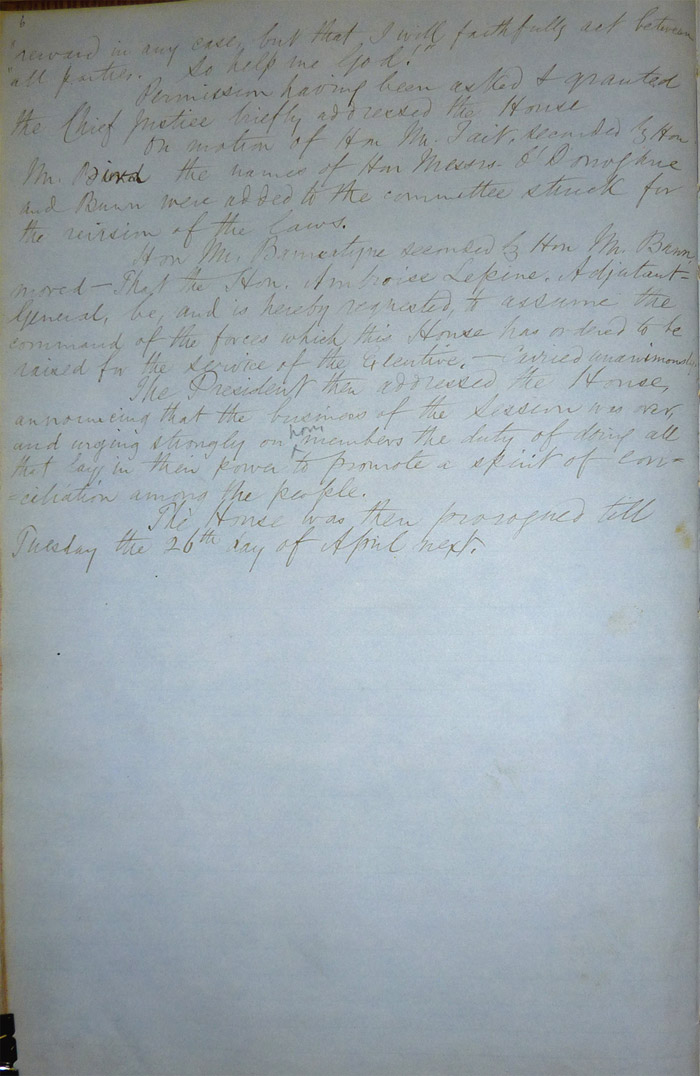 6
"reward in any case, but that I will faithfully act between
"all parties. So help me God."
Permission having been asked & granted
the Chief Justice briefly addressed the House
On motion of Hon Mr. Tait, seconded by Hon
Mr. Bird the names of Hon Messrs O'Donoghue
and Bunn were added to the committee struck for
the revision of the laws.
Hon Mr. Bannatyne seconded by Hon Mr. Bunn
moved — That the Hon. Ambroise Lepine, Adjutant-
General, be, and is hereby requested, to assume the
command of the forces which this House has ordered to be
raised for the service of the Executive. — Carried unanimously.
The President then addressed the House,
announcing that the business of the Session was over,
and urging strongly on hon members the duty of doing all
that lay in their power to promote a spirit of con-
-ciliation among the people.
The House was then prorogued till
Tuesday the 26th day of April next.